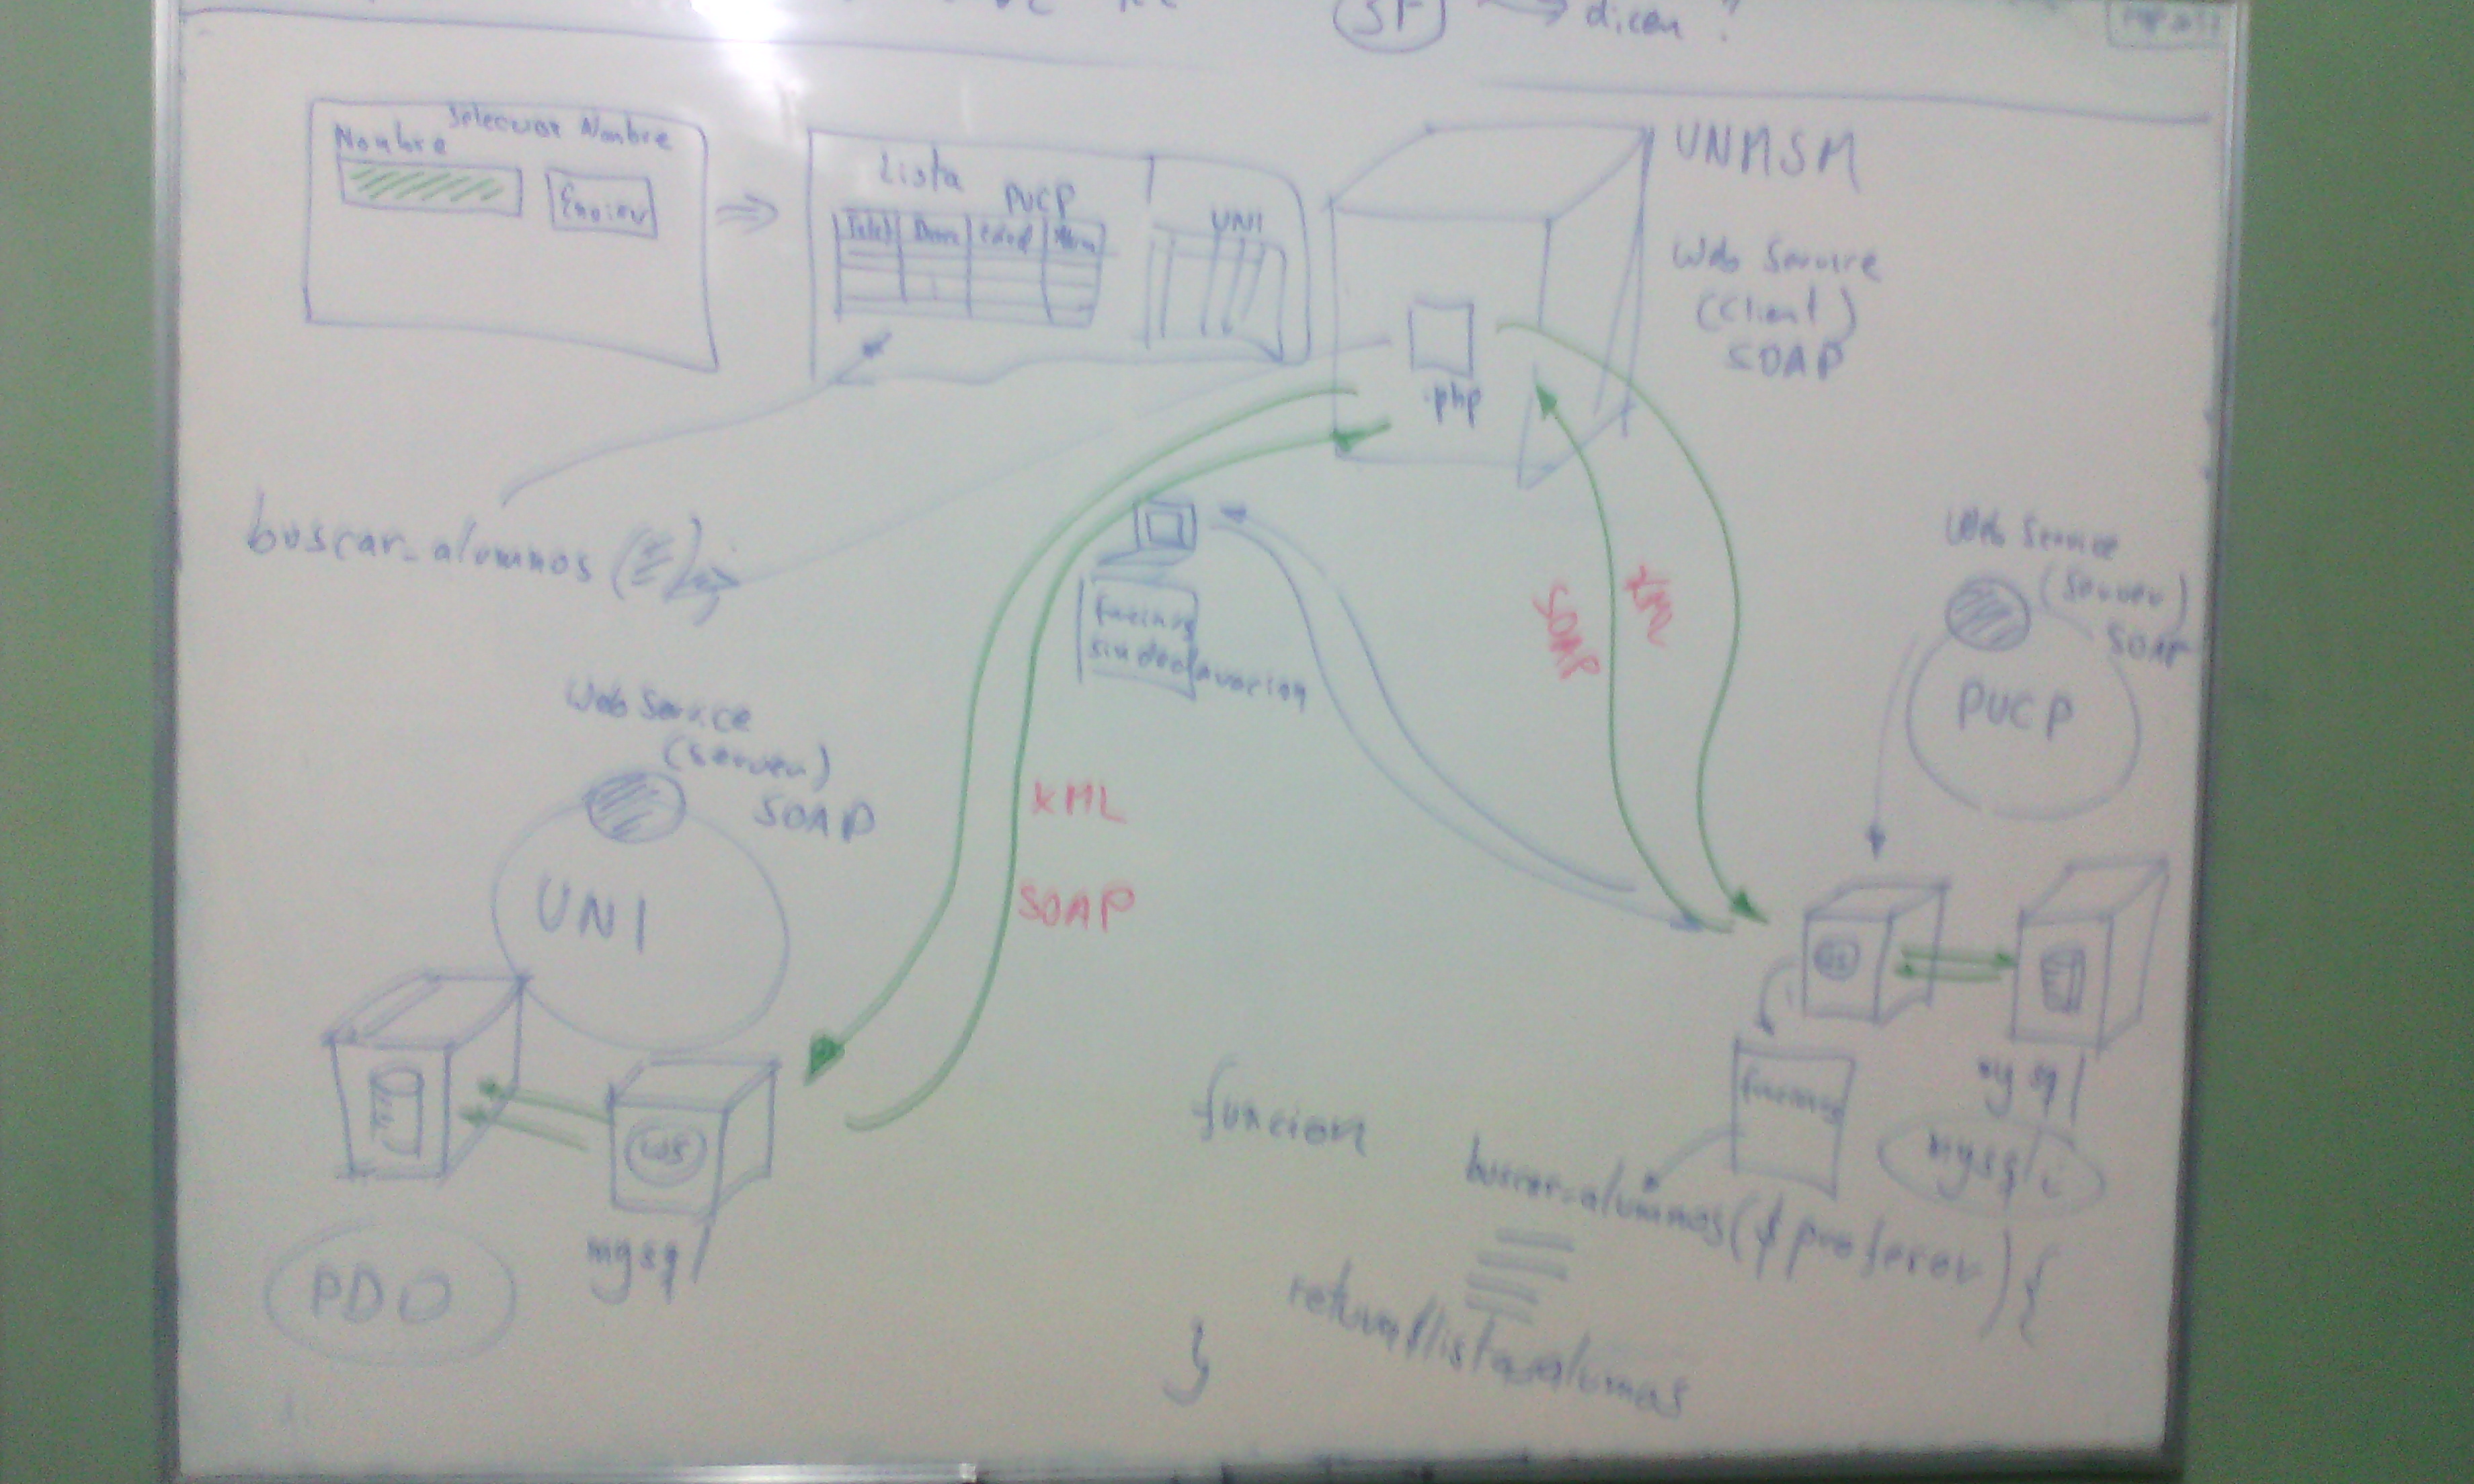 SI → dicen ?
Selecciar Nombre
Nombre
Enviar
Lista
PUCP
UNI
Edad
UNMSM
Web Service
(Client)
SOAP
.php
buscar_alumnos (
funcions
sin declaracion
SOAP
XML
Web Service
(Server)
SOAP
PUCP
Web Service
(Server)
SOAP
UNI
XML
SOAP
WS
mysql
PDO
WS
mysql
mysqli
funcions
funcion
buscar_alumnos($profesor){
return $lista_alumnos
}